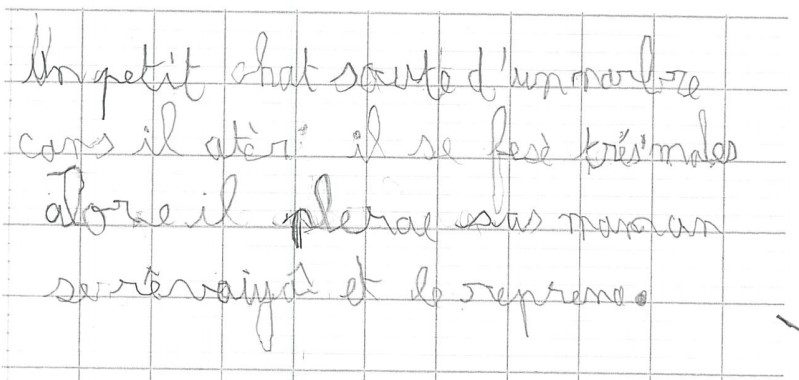 Un petit chat soute d'un narbre
cans il atèr il se fesè trés males
alore il plerae sas maman
se révaiyà et le reprene.